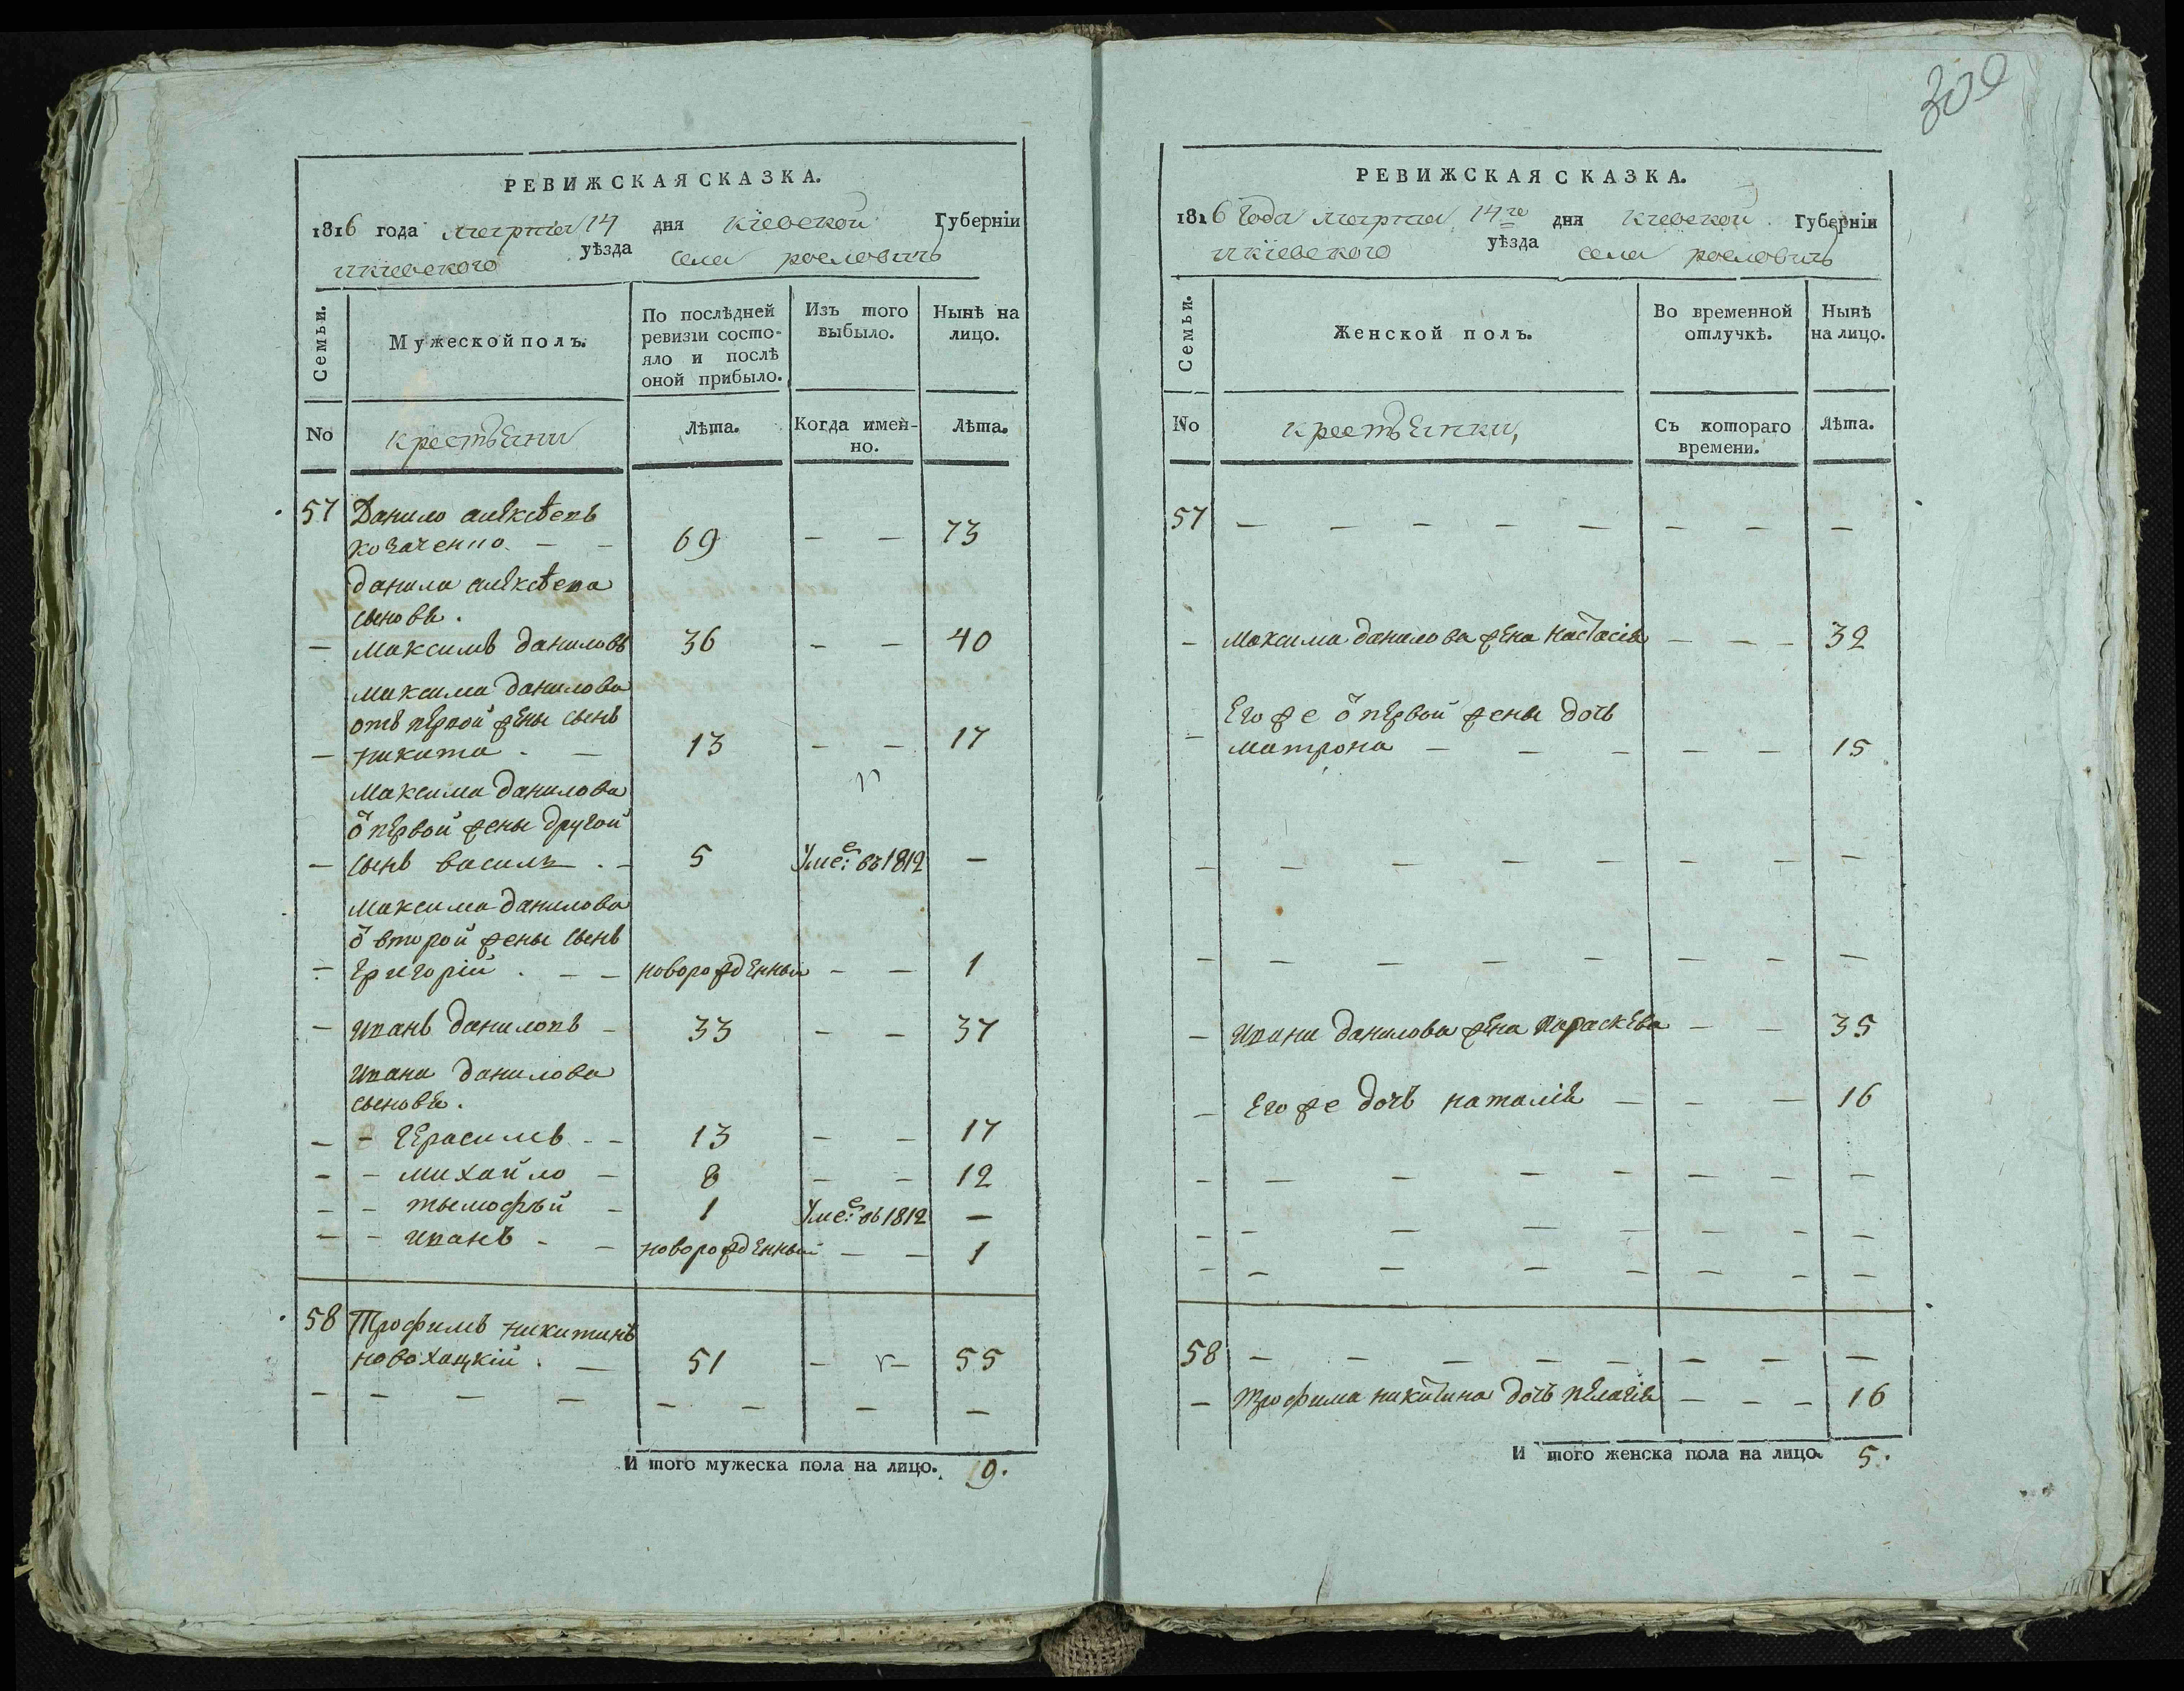 300
РЕВИЖСКАЯ СКАЗКА.
1816 года марта 14 дня кіевской Губерніи
икіевского уѣзда села рословичъ
Семьи.
Мужеской полъ.
По послѣдней
ревизіи состо-
яло и послѣ
оной прибыло.
Изъ того
выбыло.
Нынѣ на
лицо.
No
крестьяни
Лѣта.
Когда имен-
но.
Лѣта.
57 Данило алексѣевъ
козаченко — — 69 — — 73
данила алексѣева
сыновя.
— максимъ даниловъ 36 — — 40
максима данилова
отъ первой жены сынъ
— никита . — 13 — — 17
максима данилова
ѿ первой жены другой
— сынъ василь . — 5 Умеꙵ: въ 1812 —
максима данилова
ѿ второй жены сынъ
— григорій . — — новорожденный — — 1
— иванъ даниловъ — 33 — — 37
ивана данилова
сыновя.
— — герасимъ — — 13 — — 17
— — михайло — 8 — — 12
— — тымофѣй — 1 Умеꙵ: въ 1812 —
— — иванъ — — новорожденный — — 1
58 Трофимъ никитинъ
новохацкій . — 51 — — 55
— — — — — — — —
И того мужеска пола на лицо. 9.
РЕВИЖСКАЯ СКАЗКА.
1816 года марта 14го дня кіевской Губерніи
икіевского уѣзда села рословичъ
Семьи.
Женской полъ.
Во временной
отлучкѣ.
Нынѣ
на лицо.
No
крестьянки,
Съ котораго
времени.
Лѣта.
57 — — — — — — — —
— максима данилова жена настасія — — — 32
Его же ѿ первой жены дочь
— матрона — — — — — 15
— — — — — — — —
— — — — — — — — —
— ивана данилова жена параскева — — 35
— Его же дочь наталія — — — 16
— — — — — — — —
— — — — — — — —
— — — — — — — —
58 — — — — — — — —
— трофима никитина дочь пелагія — — — 16
И того женска пола на лицо. 5.